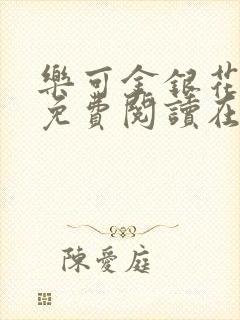 樂可金銀花
免費閱讀在
陳愛庭